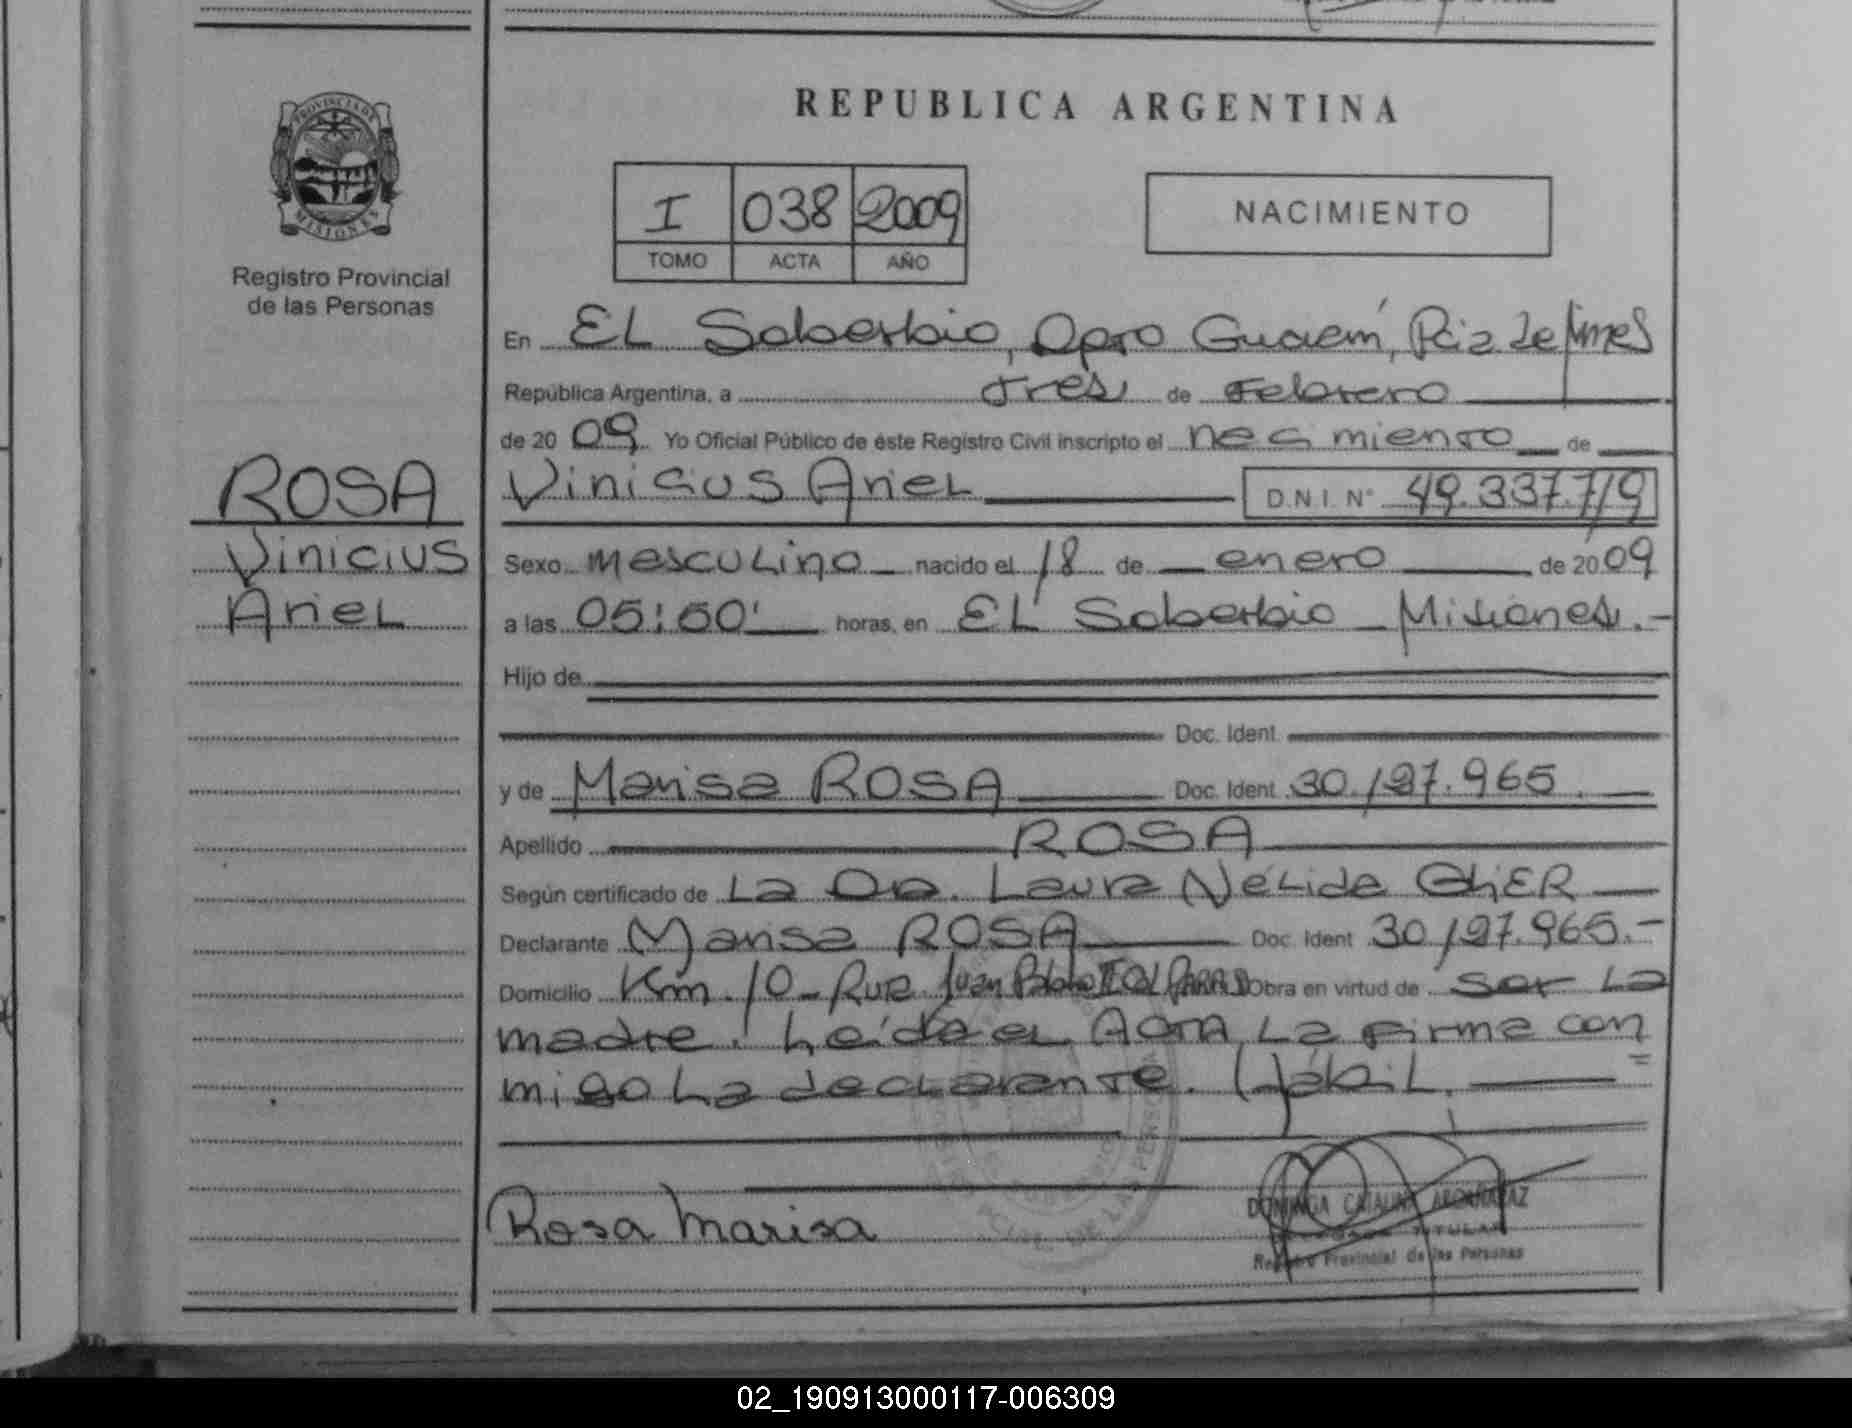 REPUBLICA ARGENTINA
PROVINCIA DE
MISIONES
Registro Provincial
de las Personas
I 038 2009
TOMO ACTA AÑO
NACIMIENTO
En EL Soberbio, Dpto Guaraní, Pcia de Mnes
República Argentina, a tres de Febrero
de 2009 Yo Oficial Público de éste Registro Civil inscripto el nacimiento de
ROSA
Vinicius
Ariel
Vinicius Ariel D.N.I. N° 49.337.719
Sexo masculino nacido el 18 de enero de 2009
a las 05:50' horas, en EL Soberbio - Misiones.-
Hijo de
Doc. Ident.
y de Marisa ROSA Doc. Ident 30.197.965.
Apellido ROSA
Según certificado de La Dra. Laura Nélida
Declarante Marisa ROSA Doc. Ident 30.197.965.-
Domicilio Km. 10 - Ruta Juan Pablo II Obra en virtud de ser La
madre. Leída el ACTA, La firma con
migo La declarante. Hábil.
Rosa Marisa
DOMINGA CATALINA
TITULAR
Registro Provincial de las Personas
02_190913000117-006309